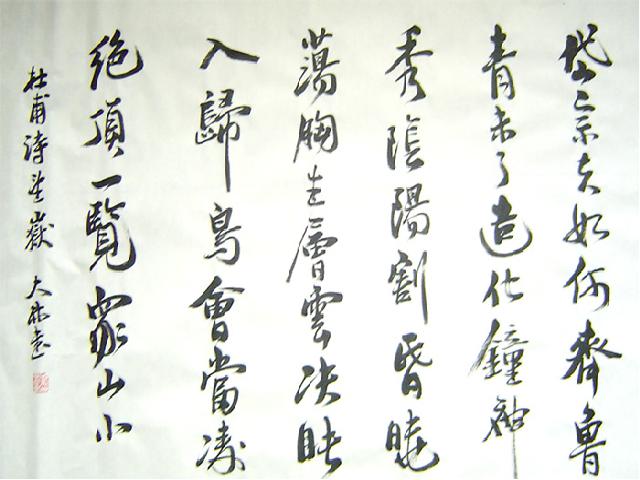 岱宗夫如何齊魯
青未了造化鐘神
秀陰陽割昏曉
蕩胸生層雲決眥
入歸鳥會當凌
絕頂一覽眾山小
杜甫詩望嶽 大林書